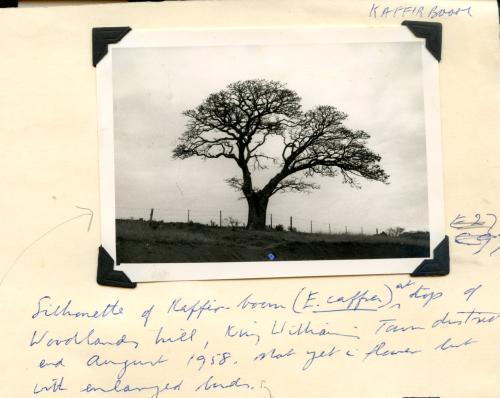 KAFFIRBOOM
E27
Silhouette of Kaffir-boom (E. caffra) at top of
Woodlands hill, King William's Town district
end August 1958. Not yet in flower but
with enlarged buds.